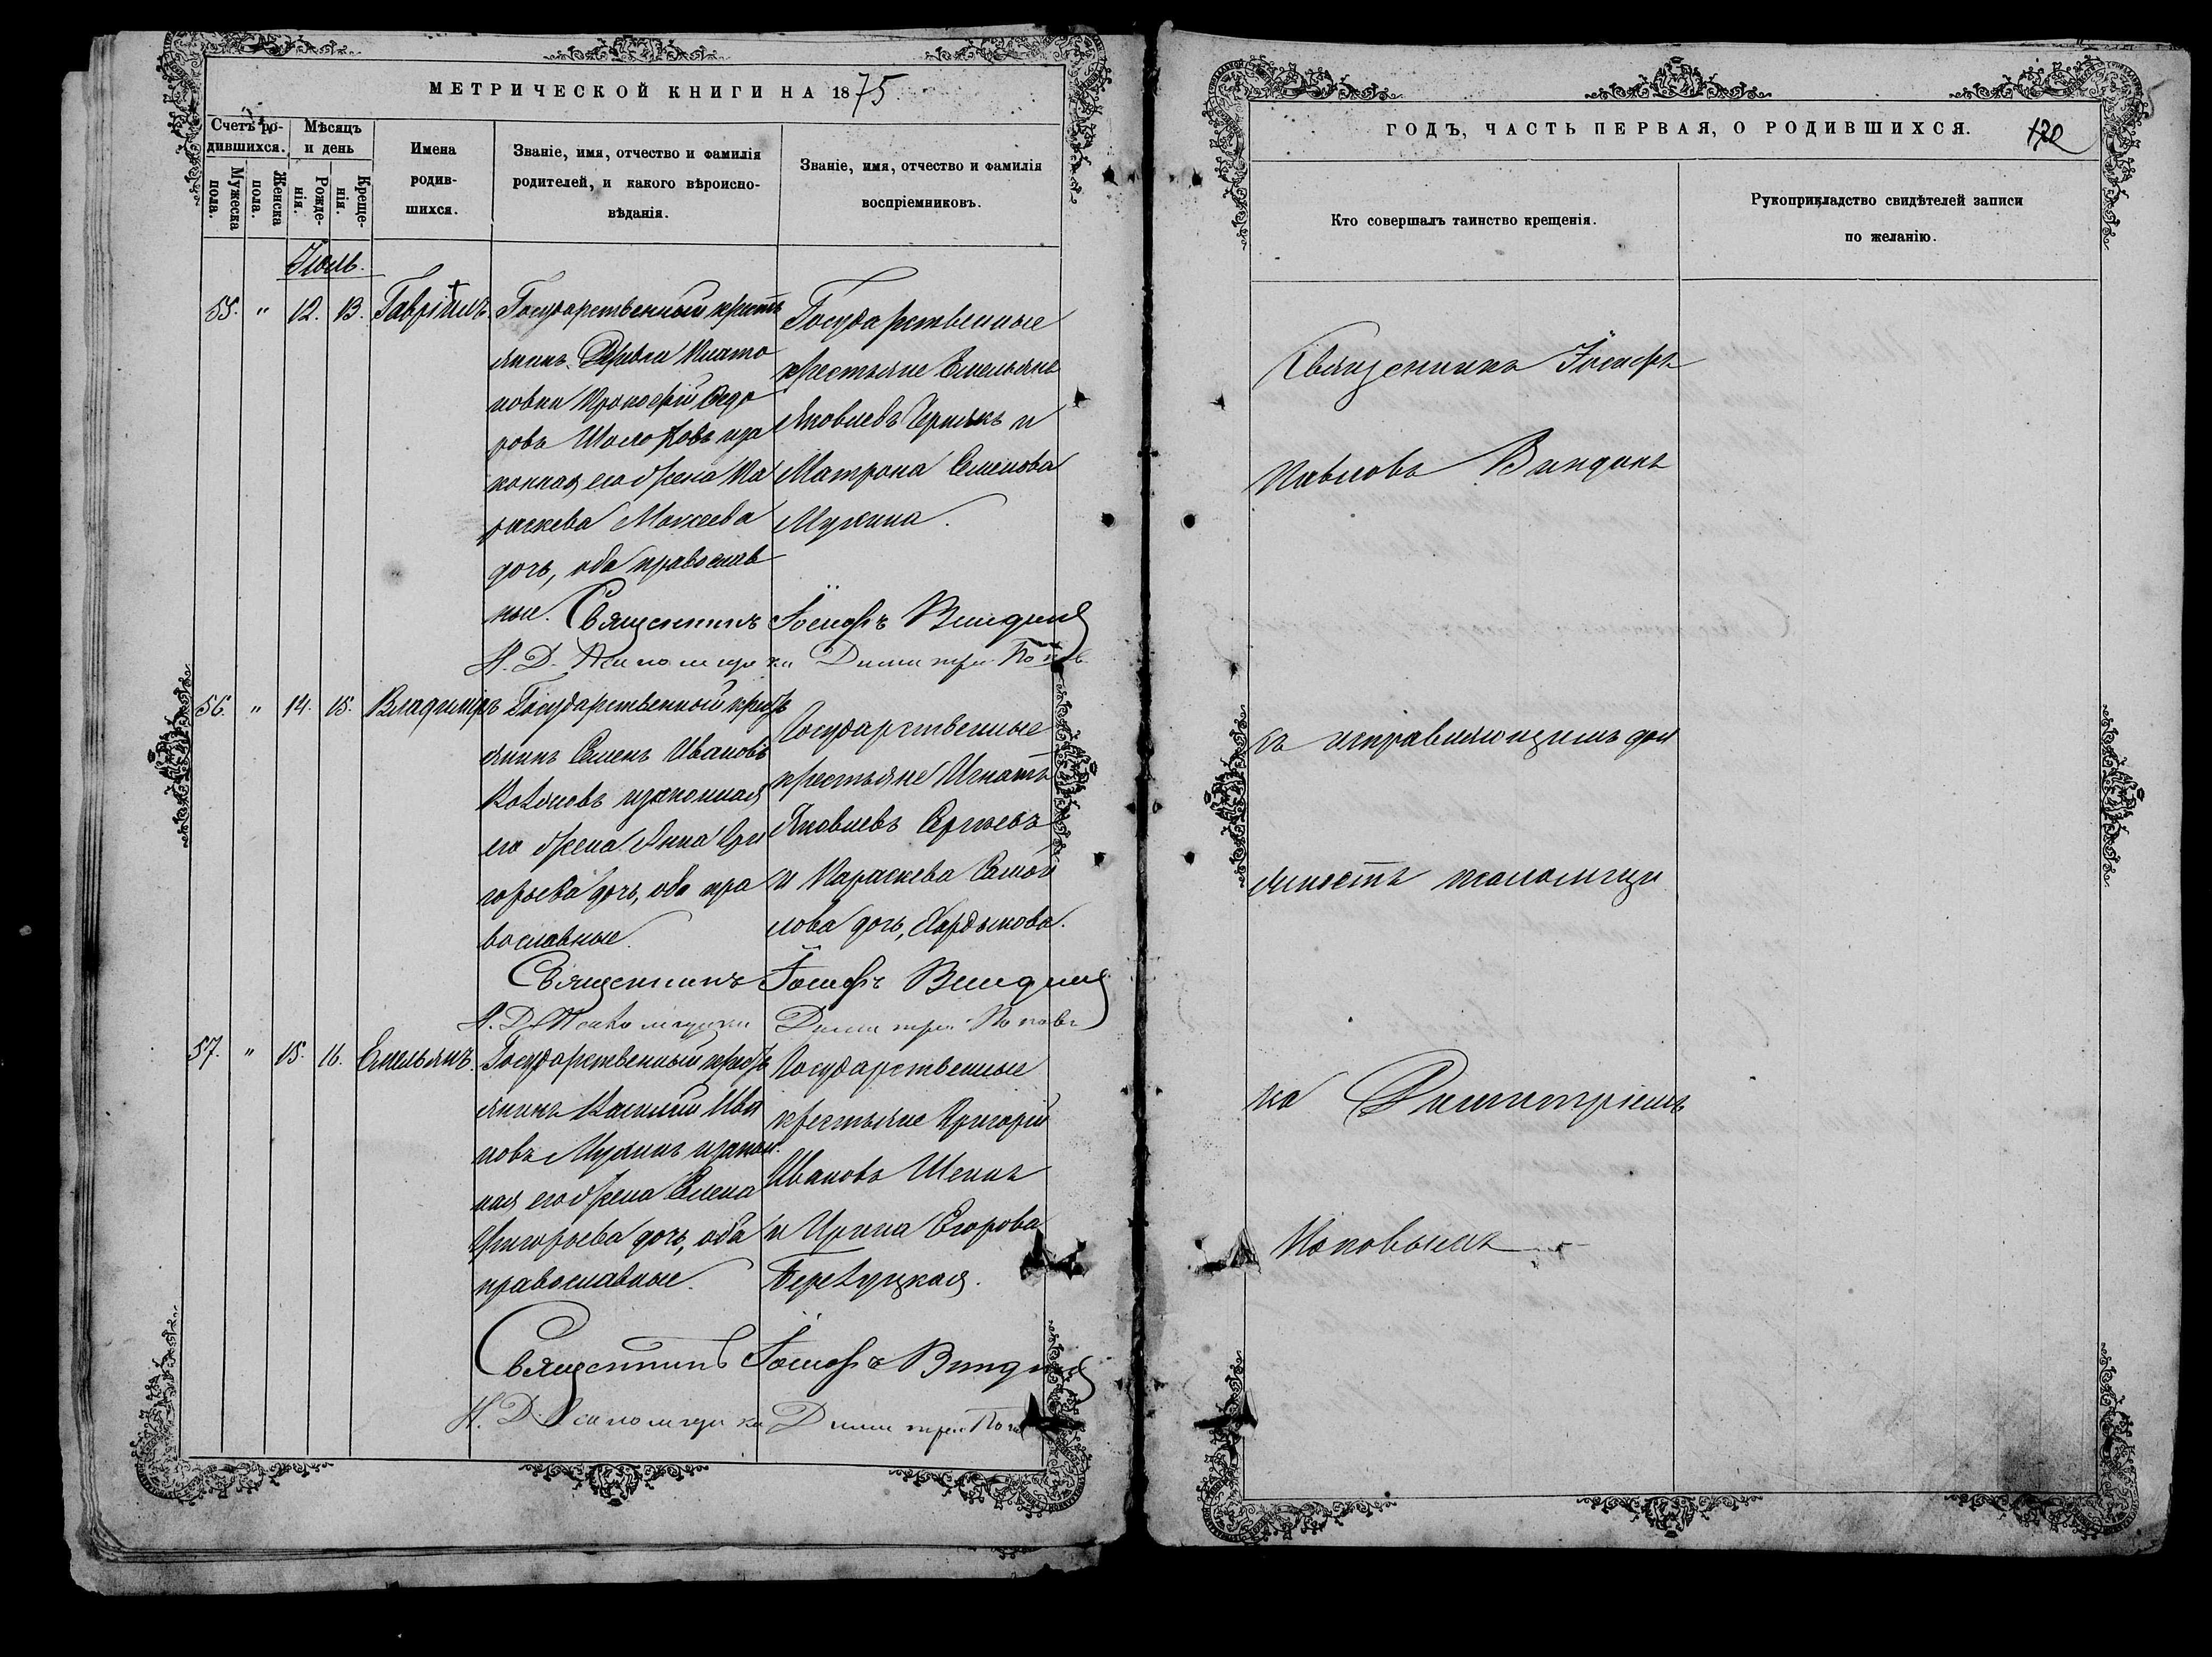 МЕТРИЧЕСКОЙ КНИГИ НА 1875
Счетъ ро-
дившихся.
Мѣсяцъ
и день
Мужеска
пола.
Женска
пола.
Рожде-
нія.
Креще-
нія.
Имена
родив-
шихся.
Званіе, имя, отчество и фамилія
родителей, и какого вѣроиспо-
вѣданія.
Званіе, имя, отчество и фамилія
воспріемниковъ.
Іюль.
55. " 12. 13. Гавріилъ.
Государственный кресть
янинъ Деревни Плато
новки Прокофій Ѳедо
ровъ и за
конная его жена Па
раскева Моисеева
дочь, оба православ
ные.
Государственные
крестьяне Емельянъ
Яковлевъ Чернякъ и
Матрона Семенова
Мухина.
Священникъ Іосифъ Виндинъ
И. Д. Псаломщика Димитрій Поповъ
56. " 14. 15. Владиміръ
Государственный кресть
янинъ Семенъ Ивановъ
Ковалевъ и законная
его жена Анна Гри
горьева дочь, оба пра
вославные.
Государственные
крестьяне Игнатъ
Яковлевъ Сергѣевъ
и Параскева Самой
лова дочь,
Священникъ Іосифъ Виндинъ
И. Д. Псаломщика Димитрій Поповъ
57. " 15. 16. Емельянъ.
Государственный кресть
янинъ Василій Ива
новъ Мухинъ и закон
ная его жена Елена
Григорьева дочь, оба
православные.
Государственные
крестьяне Григорій
Ивановъ Шеинъ
и Ирина Егорова
Священникъ Іосифъ Виндинъ
И. Д. Псаломщика Димитрій
ГОДЪ, ЧАСТЬ ПЕРВАЯ, О РОДИВШИХСЯ.
120
Кто совершалъ таинство крещенія.
Рукоприкладство свидѣтелей записи
по желанію.
Священникъ Іосифъ
Павловъ Виндинъ
съ исправляющимъ дол
жность псаломщи
ка Димитріемъ
Поповымъ